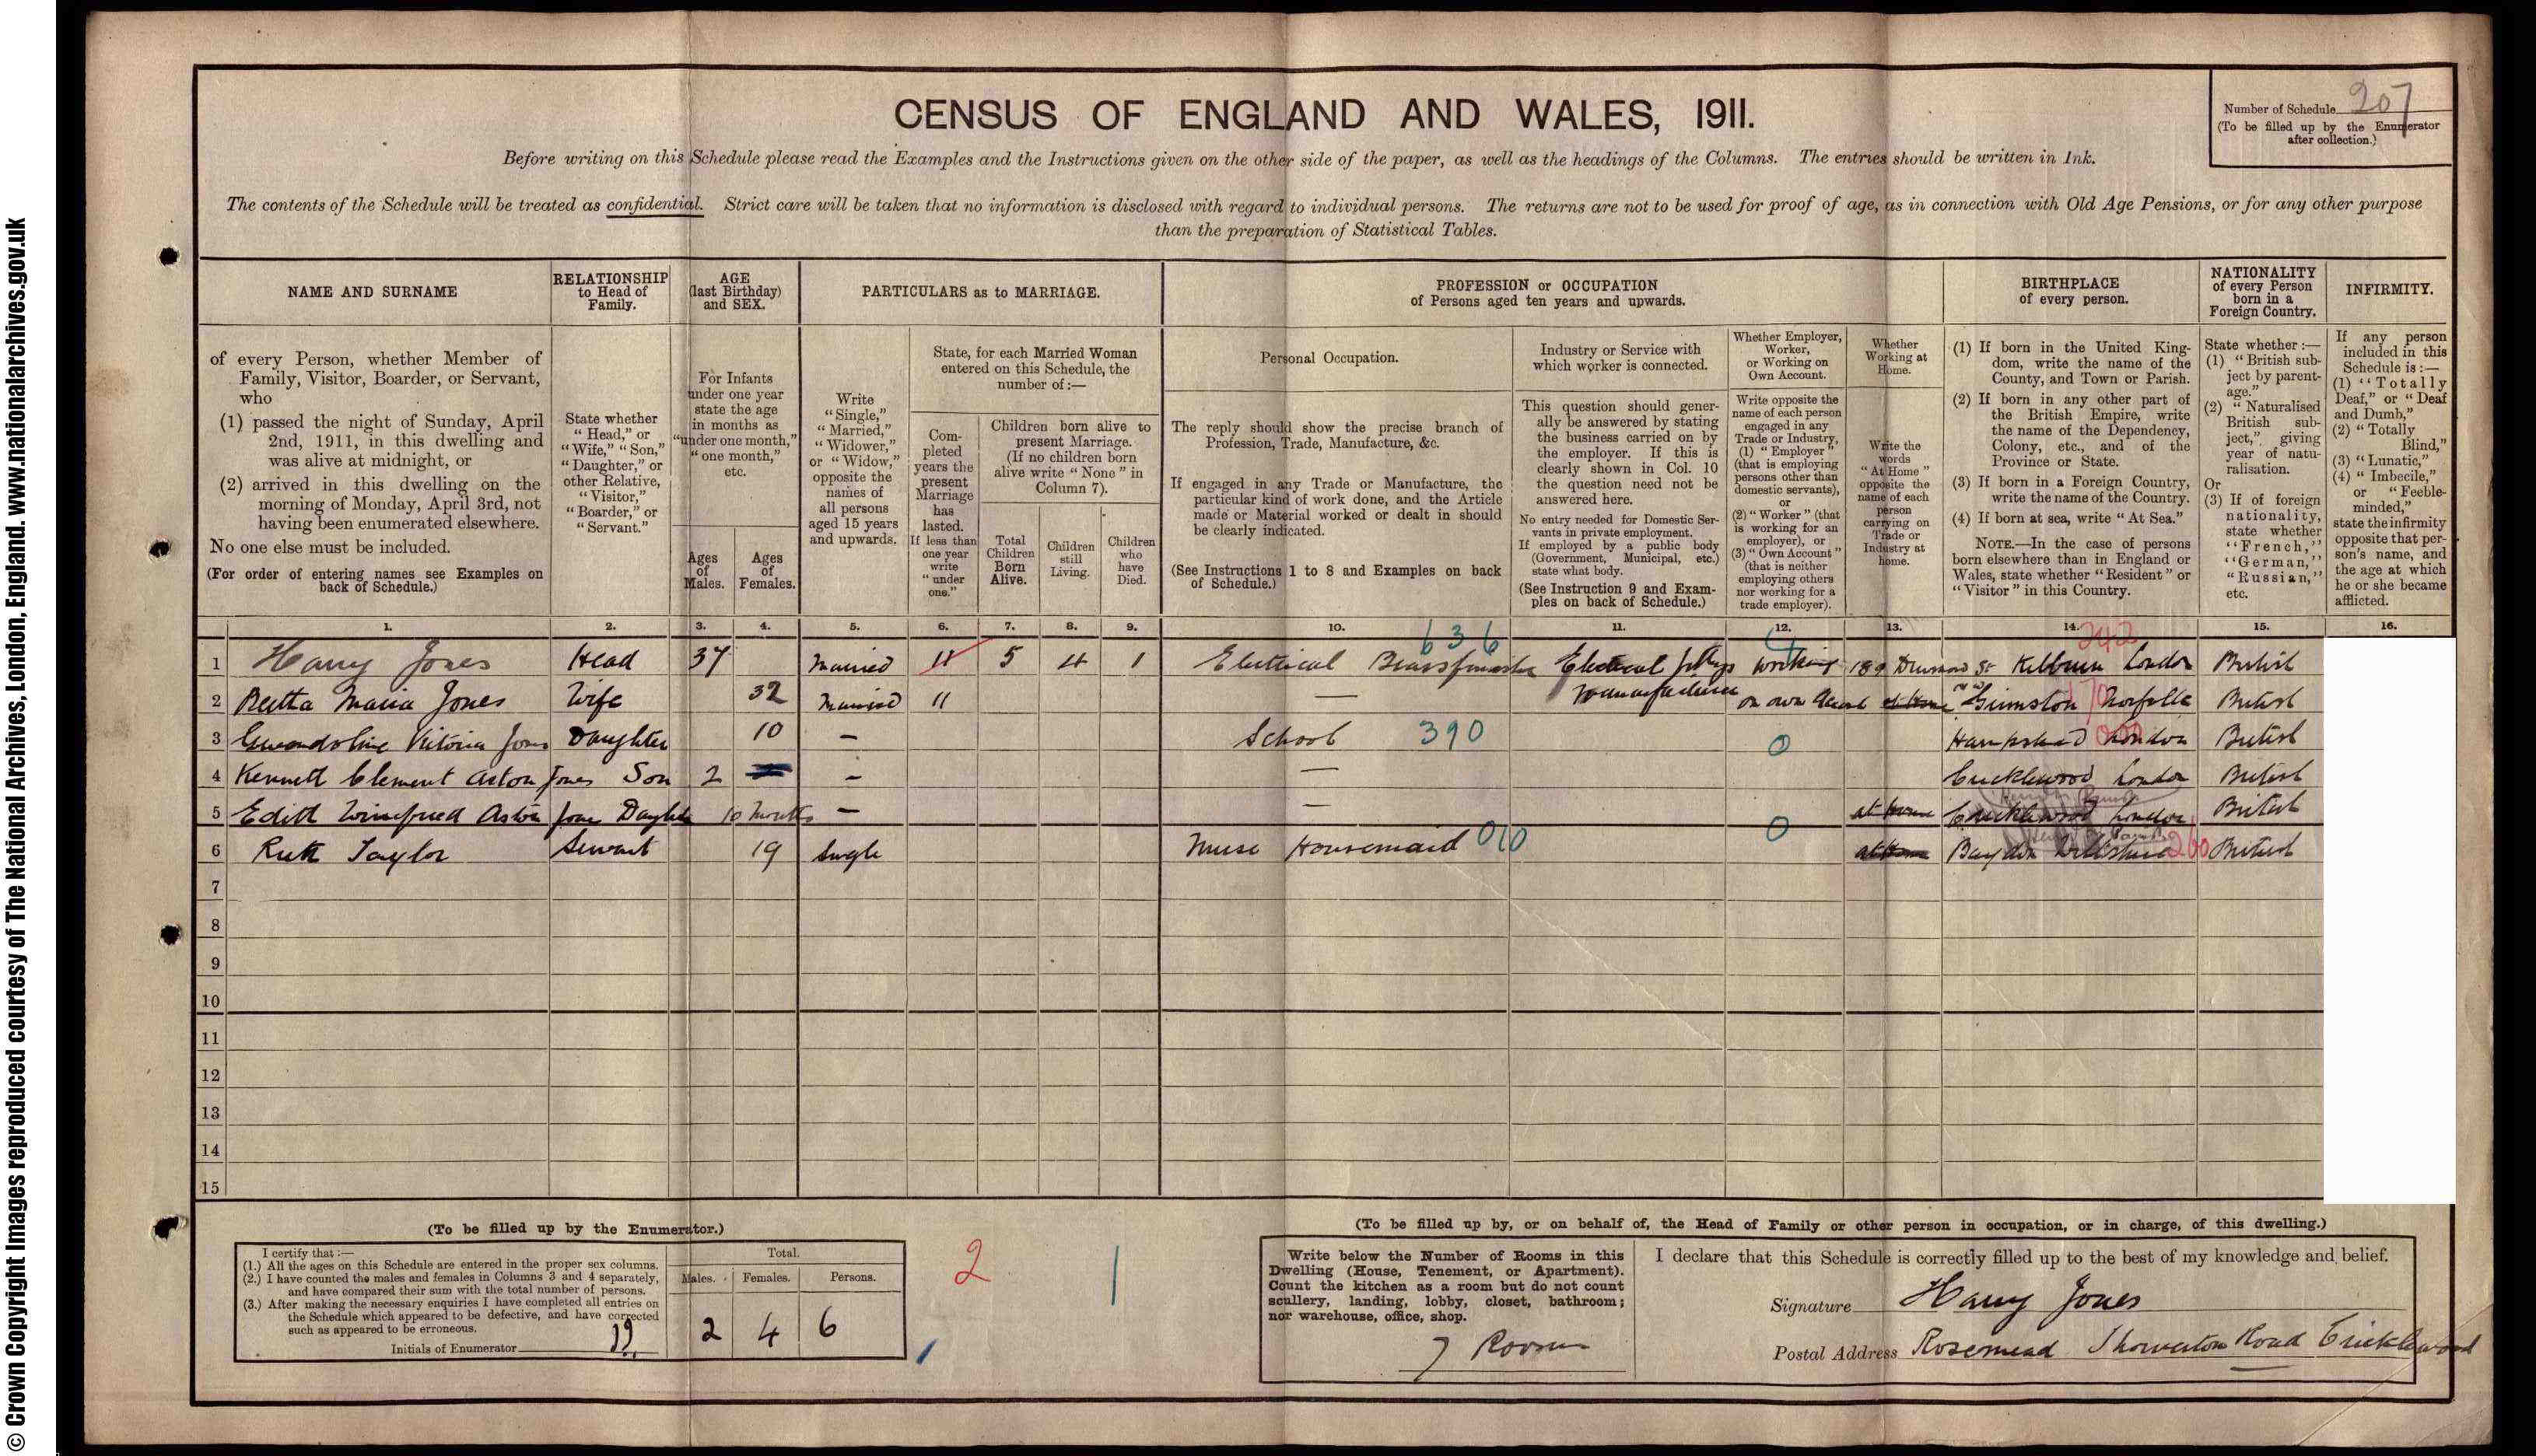 © Crown Copyright Images reproduced courtesy of The National Archives, London, England. www.nationalarchives.gov.uk
CENSUS OF ENGLAND AND WALES, 1911.
Number of Schedule 207
(To be filled up by the Enumerator
after collection.)
Before writing on this Schedule please read the Examples and the Instructions given on the other side of the paper, as well as the headings of the Columns. The entries should be written in Ink.
The contents of the Schedule will be treated as confidential. Strict care will be taken that no information is disclosed with regard to individual persons. The returns are not to be used for proof of age, as in connection with Old Age Pensions, or for any other purpose
than the preparation of Statistical Tables.
NAME AND SURNAME
of every Person, whether Member of
Family, Visitor, Boarder, or Servant,
who
(1) passed the night of Sunday, April
2nd, 1911, in this dwelling and
was alive at midnight, or
(2) arrived in this dwelling on the
morning of Monday, April 3rd, not
having been enumerated elsewhere.
No one else must be included.
(For order of entering names see Examples on
back of Schedule.)
RELATIONSHIP
to Head of
Family.
State whether
"Head," or
"Wife," "Son,"
"Daughter," or
other Relative,
"Visitor,"
"Boarder," or
"Servant."
AGE
(last Birthday)
and SEX.
For Infants
under one year
state the age
in months as
"under one month,"
"one month,"
etc.
Ages
of
Males.
Ages
of
Females.
PARTICULARS as to MARRIAGE.
Write
"Single,"
"Married,"
"Widower,"
or "Widow,"
opposite the
names of
all persons
aged 15 years
and upwards.
State, for each Married Woman
entered on this Schedule, the
number of :—
Com-
pleted
years the
present
Marriage
has
lasted.
If less than
one year
write
"under
one."
Children born alive to
present Marriage.
(If no children born
alive write "None" in
Column 7).
Total
Children
Born
Alive.
Children
still
Living.
Children
who
have
Died.
PROFESSION or OCCUPATION
of Persons aged ten years and upwards.
Personal Occupation.
The reply should show the precise branch of
Profession, Trade, Manufacture, &c.
If engaged in any Trade or Manufacture, the
particular kind of work done, and the Article
made or Material worked or dealt in should
be clearly indicated.
(See Instructions 1 to 8 and Examples on back
of Schedule.)
Industry or Service with
which worker is connected.
This question should gener-
ally be answered by stating
the business carried on by
the employer. If this is
clearly shown in Col. 10
the question need not be
answered here.
No entry needed for Domestic Ser-
vants in private employment.
If employed by a public body
(Government, Municipal, etc.)
state what body.
(See Instruction 9 and Exam-
ples on back of Schedule.)
Whether Employer,
Worker,
or Working on
Own Account.
Write opposite the
name of each person
engaged in any
Trade or Industry,
(1) "Employer"
(that is employing
persons other than
domestic servants),
or
(2) "Worker" (that
is working for an
employer), or
(3) "Own Account"
(that is neither
employing others
nor working for a
trade employer).
Whether
Working at
Home.
Write the
words
"At Home"
opposite the
name of each
person
carrying on
Trade or
Industry at
home.
BIRTHPLACE
of every person.
(1) If born in the United King-
dom, write the name of the
County, and Town or Parish.
(2) If born in any other part of
the British Empire, write
the name of the Dependency,
Colony, etc., and of the
Province or State.
(3) If born in a Foreign Country,
write the name of the Country.
(4) If born at sea, write "At Sea."
NOTE.—In the case of persons
born elsewhere than in England or
Wales, state whether "Resident" or
"Visitor" in this Country.
NATIONALITY
of every Person
born in a
Foreign Country.
State whether :—
(1) "British sub-
ject by parent-
age."
(2) "Naturalised
British sub-
ject," giving
year of natu-
ralisation.
Or
(3) If of foreign
nationality,
state whether
"French,"
"German,"
"Russian,"
etc.
INFIRMITY.
If any person
included in this
Schedule is :—
(1) "Totally
Deaf," or "Deaf
and Dumb,"
(2) "Totally
Blind,"
(3) "Lunatic,"
(4) "Imbecile,"
or "Feeble-
minded,"
state the infirmity
opposite that per-
son's name, and
the age at which
he or she became
afflicted.
1. 2. 3. 4. 5. 6. 7. 8. 9. 10. 11. 12. 13. 14. 15. 16.
636 242
1 Harry Jones Head 37 Married 11 5 4 1 Electrical Electrical fittings Working Kilburn London British
2 Maria Jones Wife 32 Married 11 — Manufacturer on own at Home Grimston Norfolk British
3 Gwendoline Victoria Jones Daughter 10 — School 390 0 Hampstead London British
4 Kenneth Clement Aston Jones Son 2 — — Cricklewood London British
5 Edith Winefried Aston Jones Daughter 10 months — — at Home Cricklewood London British
6 Ruth Taylor Servant 19 Single Nurse Housemaid 010 0 at Home Baydon Wiltshire 260 British
7
8
9
10
11
12
13
14
15
(To be filled up by the Enumerator.)
I certify that :—
(1.) All the ages on this Schedule are entered in the proper sex columns.
(2.) I have counted the males and females in Columns 3 and 4 separately,
and have compared their sum with the total number of persons.
(3.) After making the necessary enquiries I have completed all entries on
the Schedule which appeared to be defective, and have corrected
such as appeared to be erroneous.
Initials of Enumerator
Total.
Males. Females. Persons.
2 4 6
2 1
(To be filled up by, or on behalf of, the Head of Family or other person in occupation, or in charge, of this dwelling.)
Write below the Number of Rooms in this
Dwelling (House, Tenement, or Apartment).
Count the kitchen as a room but do not count
scullery, landing, lobby, closet, bathroom;
nor warehouse, office, shop.
7 Rooms
I declare that this Schedule is correctly filled up to the best of my knowledge and belief.
Signature Harry Jones
Postal Address Rosemead Road Cricklewood